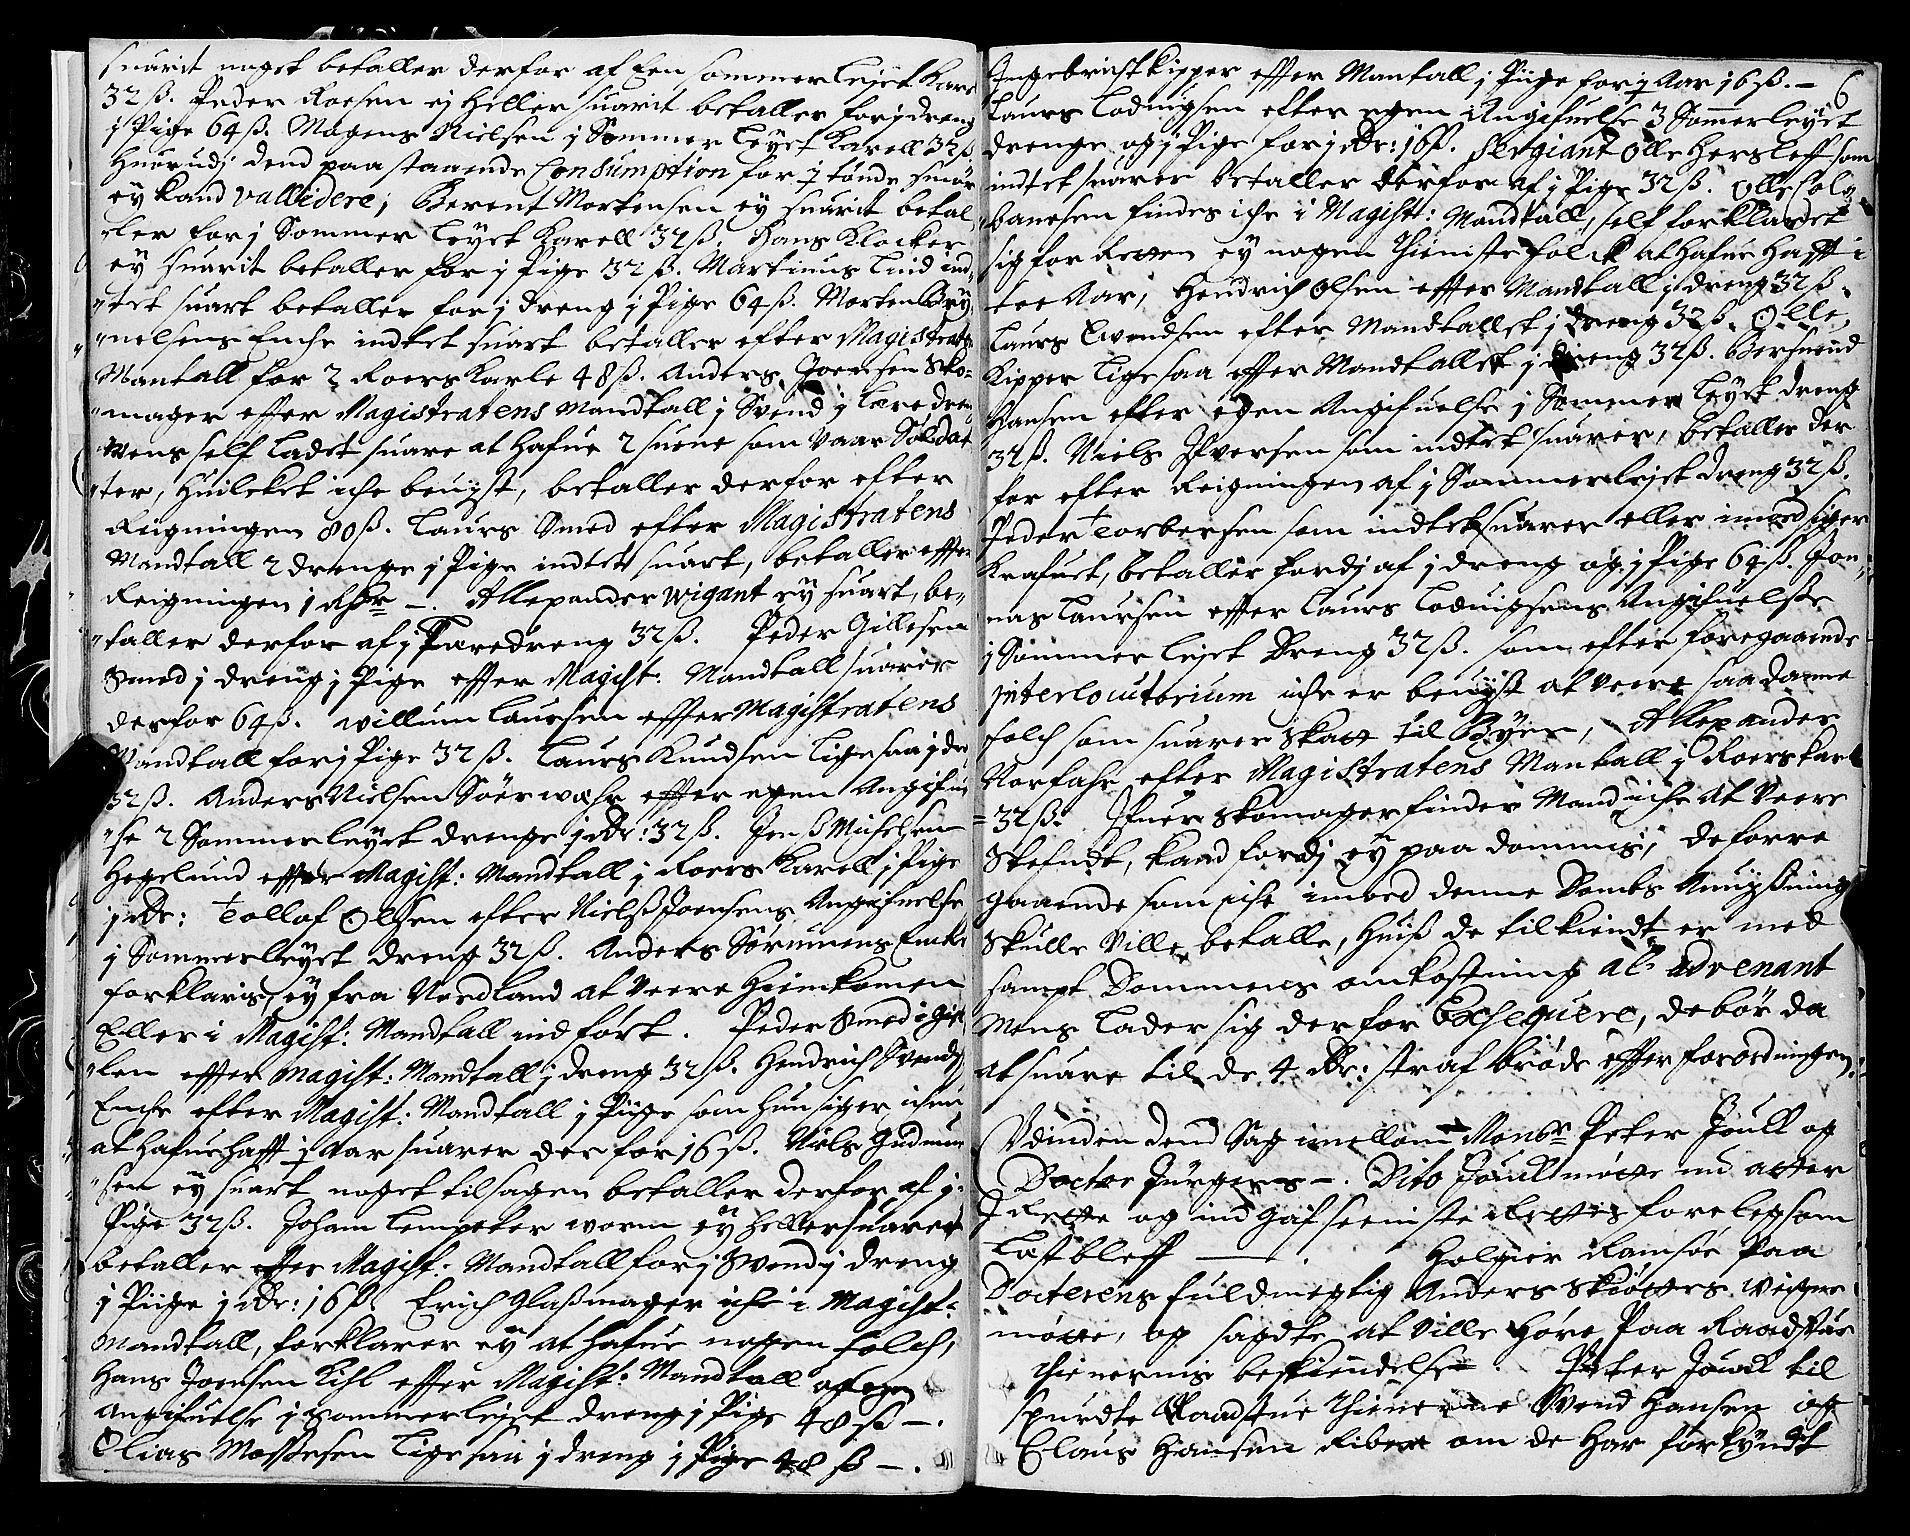 suarit noget betaller derfor af Een sommer leyet Karl
32 ß. Peder Roesen ej heller suarit betaller for j dreng
j Pige 64 ß. Mogens Nielsen j Sommer leyet Karell 32 ß
huorudj dend paastaaende Consumption for 7 tønde smør
ey kand vallidere; Berent Mortensen ey suarit betal
"ler for j Sommer leyet Karell 32 ß. Hans Klocker
ey suarit betaller for j Pige 32 ß. Martinus Lind ind
"tet suart betaller for j dreng j Pige 64 ß. Morten Bry
"nelsens Enche indtet suart betaller efter Magistrats
Mantall for 2 Roers Karle 48 ß. Anders Joensen Sko-
"mager effter Magistratens Mandtall j Svend j Læredren
Mens self ladet suare at hafue 2 suene som vaar Soldat
"ter, huilcket iche beuyst, betaller derfor efter
Reigningen 80 ß. Laurs Smed efter Magistratens
Mandtall 2 drenge j Pige indtet suart, betaller effter
Reigningen 1 Rdr —. Allexander Wigant ey suart, be-
"taller derfor af j Læredreng 32 ß. Peder Gillesen
Smed j dreng j Pige effter Magist: Mandtall suarer
derfor 64 ß. Willum Laursen effter Magistratens
Mandtall for j Pige 32 ß. Laurs Knudsen ligesaa j dre
32 ß. Anders Nielsen Sörwæhr effter egen Angifuel
"se 2 Sommerleyet drenge j Rdr: 32 ß. Jenß Michelsen
Hegelund effter Magist: Mandtall j Roers Karell j Pige
j Rdr: Tollof Olsen efter Nielß Joensens Angifuelse
j Sommerleyet dreng 32 ß. Anders Sörensens Enche
forklaris, ey fra Nordland at veere hiemkomen
Eller i Magist: Mandtall indført. Peder Smed i Gie
"len effter Magist: Mandtall j dreng 32 ß. Hendrich Svends
Enche efter Magist: Mandtall j Piige som hun siger ichun
at hafue hafft j Aar suarer derfor 16 ß. Niels Gudmun
"sen ey suart noget til sagen betaller derfor af j
Pige 32 ß. Johan Lempeker worm ey heller suaret
betaller effter Magist: Mandtall for j Svend j dreng
j Piige j Rdr: 16 ß. Erich Glaßmager iche i Magist:
Mandtall, forklarer ey at hafue nogen folch,
Hans Joensen Kihl effter Magist: Mandtall af egen
Angifuelse j Sommerleyet dreng j Pige 48 ß —.
Elias Mossesen ligesaa j dreng j Pige 48 ß —.
6
Ingebricht Kipper effter Mantall j Piige for j Aar 16 ß. —
Laurs Loduigsen efter egen Angifuelse 3 Sommerleyet
drenge og j Pige for j Rdr: 16 ß. Sergiant Olle Hersleff som
indtet suarer betaller derfor af j Pige 32 ß. Olle Colg
"banesen findes iche i Magist: Mandtall, self forklaret
sig for Retten ey nogen thieniste folck at hafue hafft i
toe Aar, Hendrich Olsen effter Mandtall j dreng 32 ß.
Laurs Evendsen efter Mandtallet j dreng 32 ß. Olle
Kipper ligesaa effter Mandtallet j dreng 32 ß. Bersuend
Hansen efter egen Angifuelse j Sommer leyet dreng
32 ß. Niels Ifversen som indtet suarer, betaller der
for efter Reigningen af j Sommerleyet dreng 32 ß.
Peder Torbersen som indtet suarer eller imodsiger
Krafuet, betaller fordj af j dreng og j Pige 64 ß. Jon-
nas Laursen effter Laurs Loduigsens Angifuelse
j Sommer leyet dreng 32 ß. som efter foregaaende
jnterlocutorium iche er beuyst at veere saadanne
folch som suarer skatt til Byen, Allexander
Norfahr efter Magistratens Mantall j Roerskarl
32 ß. Ifuer Skomager finder Mand iche at veere
Stefndt, kand fordj ey paa dommis; deforre
gaaende som iche imod denne Dombs Anuyßning
Skulle Ville betalle, huiß de tilkiendt er med
sampt Dommens omkostning al advenant
Mens lader sig derfor Exsequere, de bör da
at suare til de 4 Rdr: straf bröde effter forordningen.
Udinden dend Sag imellom Monsr Peter Jouck og
Doctor Jürgens —. Dito Jouck mötte nu atter
I Rette og indgaf seeniste Rettes forelegsom
læst bleff —. Holgier Ramsöe paa
Docterens fuldmegtig Anders Skiöttes Veigne
mötte, og sagde at ville høre paa Raadstue
thienernis bestiendelse. Peter Jouck til
spurdte Raadstue thienerne Svend Hansen og
Claus Hansen Riber om de har forkyndt